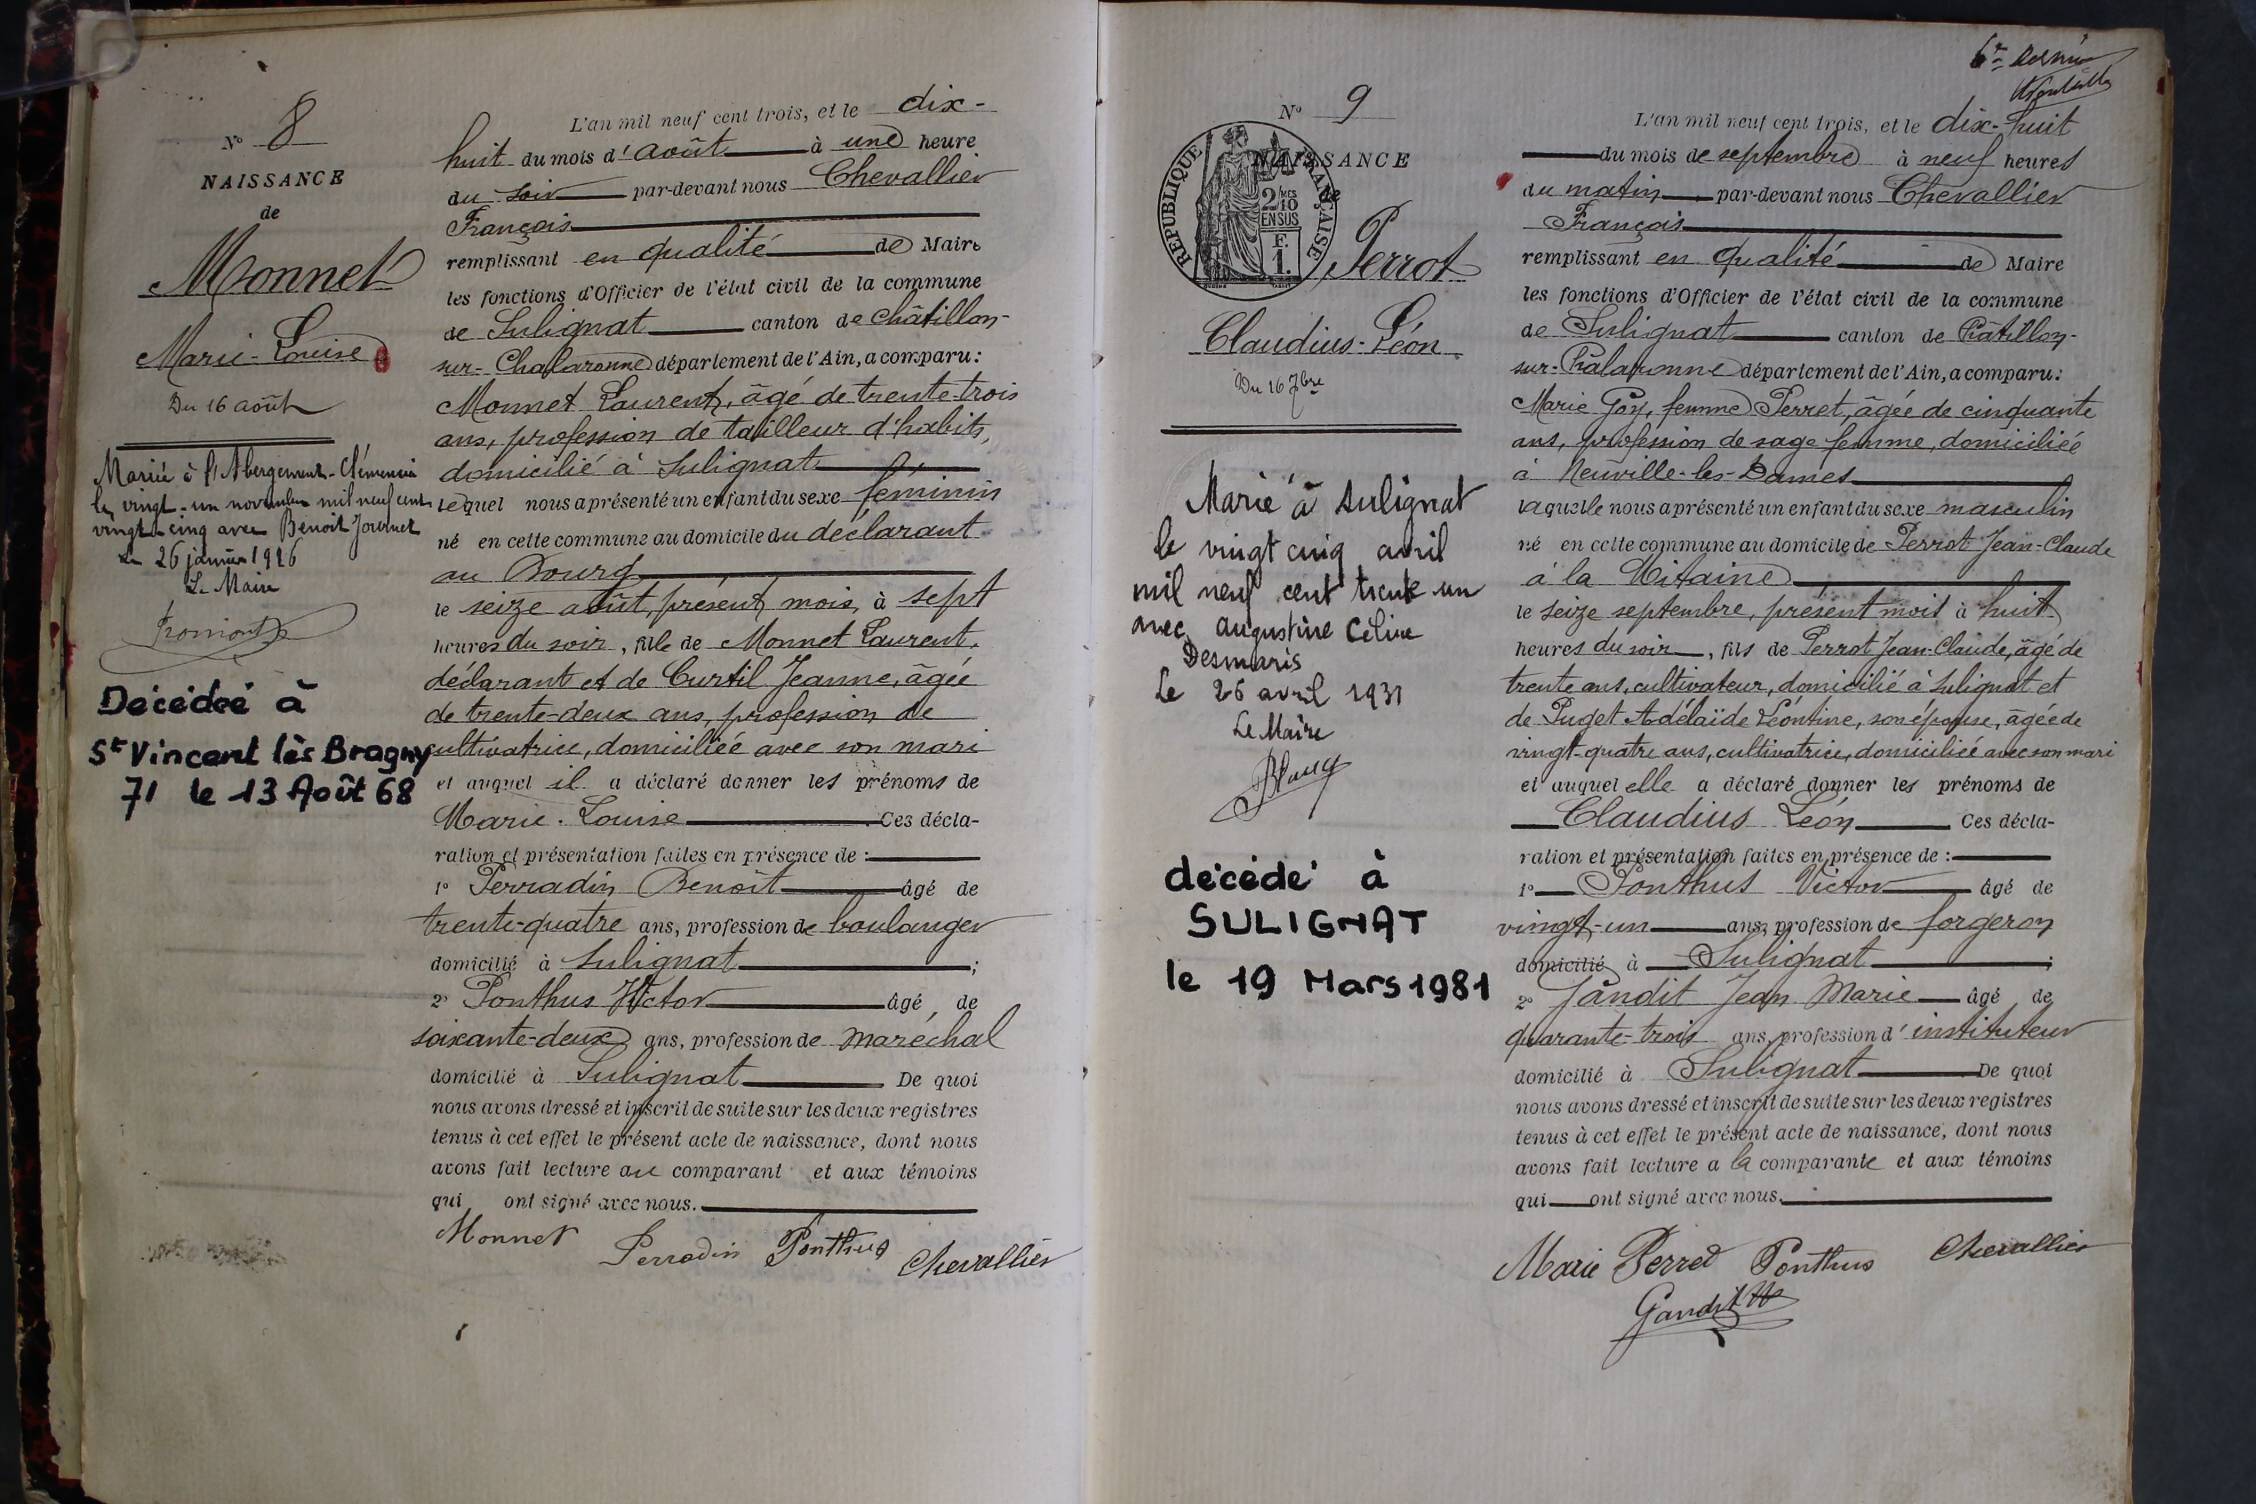 N° 8
NAISSANCE
de
Monnet
Marie-Louise
Du 16 août
Mariée à l'Abergement-Clémencia
le vingt-un novembre mil neuf cent
vingt-cinq avec Benoit Journet
Le 26 janvier 1926
Le Maire
Décédée à
St Vincent lès Bragny
71 le 13 Août 68
L'an mil neuf cent trois, et le dix-
huit du mois d'août à une heure
du soir par-devant nous Chevallier
François
remplissant en qualité de Maire
les fonctions d'Officier de l'état civil de la commune
de Sulignat canton de Châtillon-
sur-Chalaronne département de l'Ain, a comparu:
Monnet Laurent, âgé de trente-trois
ans, profession de tailleur d'habits,
domicilié à Sulignat
lequel nous a présenté un enfant du sexe féminin
né en cette commune au domicile du déclarant
au Bourg
le seize août, présent mois, à sept
heures du soir, fille de Monnet Laurent,
déclarant et de Curtil Jeanne, âgée
de trente-deux ans, profession de
cultivatrice, domiciliée avec son mari
et auquel il a déclaré donner les prénoms de
Marie-Louise Ces décla-
ration et présentation faites en présence de :
1° Perradin Benoît âgé de
trente-quatre ans, profession de boulanger
domicilié à Sulignat ;
2° Ponthus Victor âgé de
soixante-deux ans, profession de maréchal
domicilié à Sulignat De quoi
nous avons dressé et inscrit de suite sur les deux registres
tenus à cet effet le présent acte de naissance, dont nous
avons fait lecture au comparant et aux témoins
qui ont signé avec nous.
Monnet Perradin Ponthus Chevallier
N° 9
NAISSANCE
de
RÉPUBLIQUE FRANÇAISE
2/10 MES
EN SUS
F.
1.
Perrot
Claudius-Léon
Du 16 7bre
Marié à Sulignat
le vingt cinq avril
mil neuf cent trente un
avec Augustine Céline
Desmaris
Le 26 avril 1931
Le Maire
décédé à
SULIGNAT
le 19 Mars 1981
L'an mil neuf cent trois, et le dix-huit
du mois de septembre à neuf heures
du matin par-devant nous Chevallier
François
remplissant en qualité de Maire
les fonctions d'Officier de l'état civil de la commune
de Sulignat canton de Châtillon-
sur-Chalaronne département de l'Ain, a comparu:
Marie Goy, femme Perret, âgée de cinquante
ans, profession de sage femme, domiciliée
à Neuville-les-Dames
laquelle nous a présenté un enfant du sexe masculin
né en cette commune au domicile de Perrot Jean-Claude
à la Mitaine
le seize septembre, présent mois à huit
heures du soir, fils de Perrot Jean-Claude, âgé de
trente ans, cultivateur, domicilié à Sulignat et
de Puget Adélaïde Léontine, son épouse, âgée de
vingt-quatre ans, cultivatrice, domiciliée avec son mari
et auquel elle a déclaré donner les prénoms de
Claudius Léon Ces décla-
ration et présentation faites en présence de :
1° Ponthus Victor âgé de
vingt-un ans, profession de forgeron
domicilié à Sulignat ;
2° Gandit Jean Marie âgé de
quarante-trois ans, profession d'instituteur
domicilié à Sulignat De quoi
nous avons dressé et inscrit de suite sur les deux registres
tenus à cet effet le présent acte de naissance, dont nous
avons fait lecture a la comparante et aux témoins
qui ont signé avec nous.
Marie Perret Ponthus Chevallier
Gandit